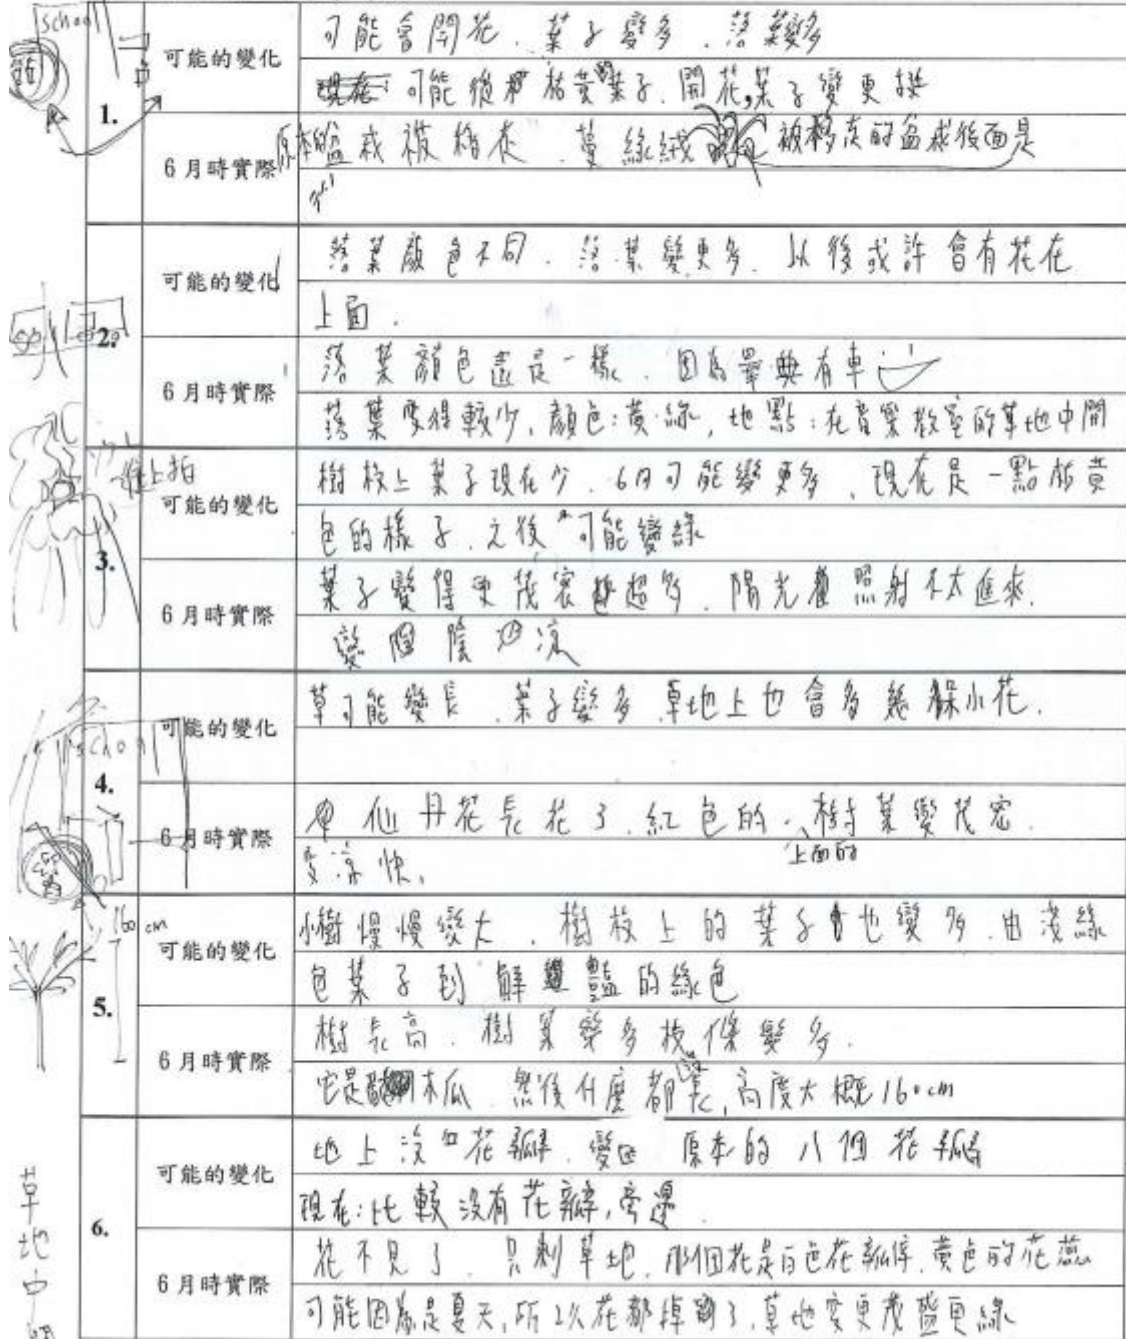 school
1.
可能的變化
可能會開花、葉子變多、落葉變多
可能後 枯黃葉子、開花,葉子變更挺
6月時實際
原本的盆栽被移走、 被移走的盆栽後面是
2.
可能的變化
落葉顏色不同、落葉變更多、以後或許會有花在
上面、
6月時實際
落葉顏色還是一樣、因為畢典有車
落葉變得較少,顏色:黃、綠,地點:在音樂教室的草地中間
往上拍
3.
可能的變化
樹枝上葉子現在少、6月可能變更多、現在是一點 黃
色的樣子、之後可能變綠
6月時實際
葉子變得更茂密超多、陽光 照射不太進來、
變 陰 涼
school
4.
可能的變化
草可能變長、葉子變多、草地上也會多 小花、
6月時實際
仙丹花長花了、紅色的、上面的樹葉變茂密、
變涼快、
160 cm
5.
可能的變化
小樹慢慢變大、樹枝上的葉子也變多、由淺綠
色葉子到鮮豔的綠色
6月時實際
樹長高、樹葉變多、枝條變多、
它是木瓜、然後什麼都 長,高度大概160cm
草地中間
6.
可能的變化
地上沒 花瓣、變回原本的八個花瓣
現在:比較沒有花瓣,旁邊、
6月時實際
花不見了、只剩草地、那個花是白色花瓣、黃色的花蕊
可能因為是夏天,所以花都掉 了、草地變更茂盛更綠